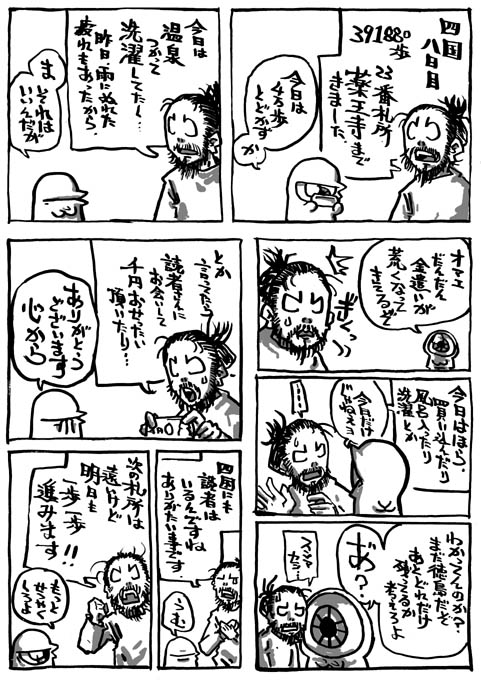 四国
八日目
391880
歩
23番札所
薬王寺まで
きました。
今日は
4万歩
とどかず
か
今日は
温泉
つかって
洗濯してたし…
昨日雨にぬれた
疲れもあったから。
ま
それは
いいんだが
オマエ
だんだん
金遣いが
荒くなって
きてるぞ
ぎくっ
今日はほら、
買い込んだり
風呂入ったり
洗濯とか
今日だけ
じゃねェヨ
わかってんのか?
まだ徳島だぞ
あとどれだけ
残ってるか
考えろよ
あ?
スイマ
セン…
とか
言ってたら
読者さんに
お会いして
千円お接たい
頂いたり…
ありがとう
ございます
心から
四国にも
読者は
いるんですね
ありがたい事です。
うむ
次の札所は
遠いけど
明日も
一歩一歩
進みます!!
もっと
せつやく
しろよ